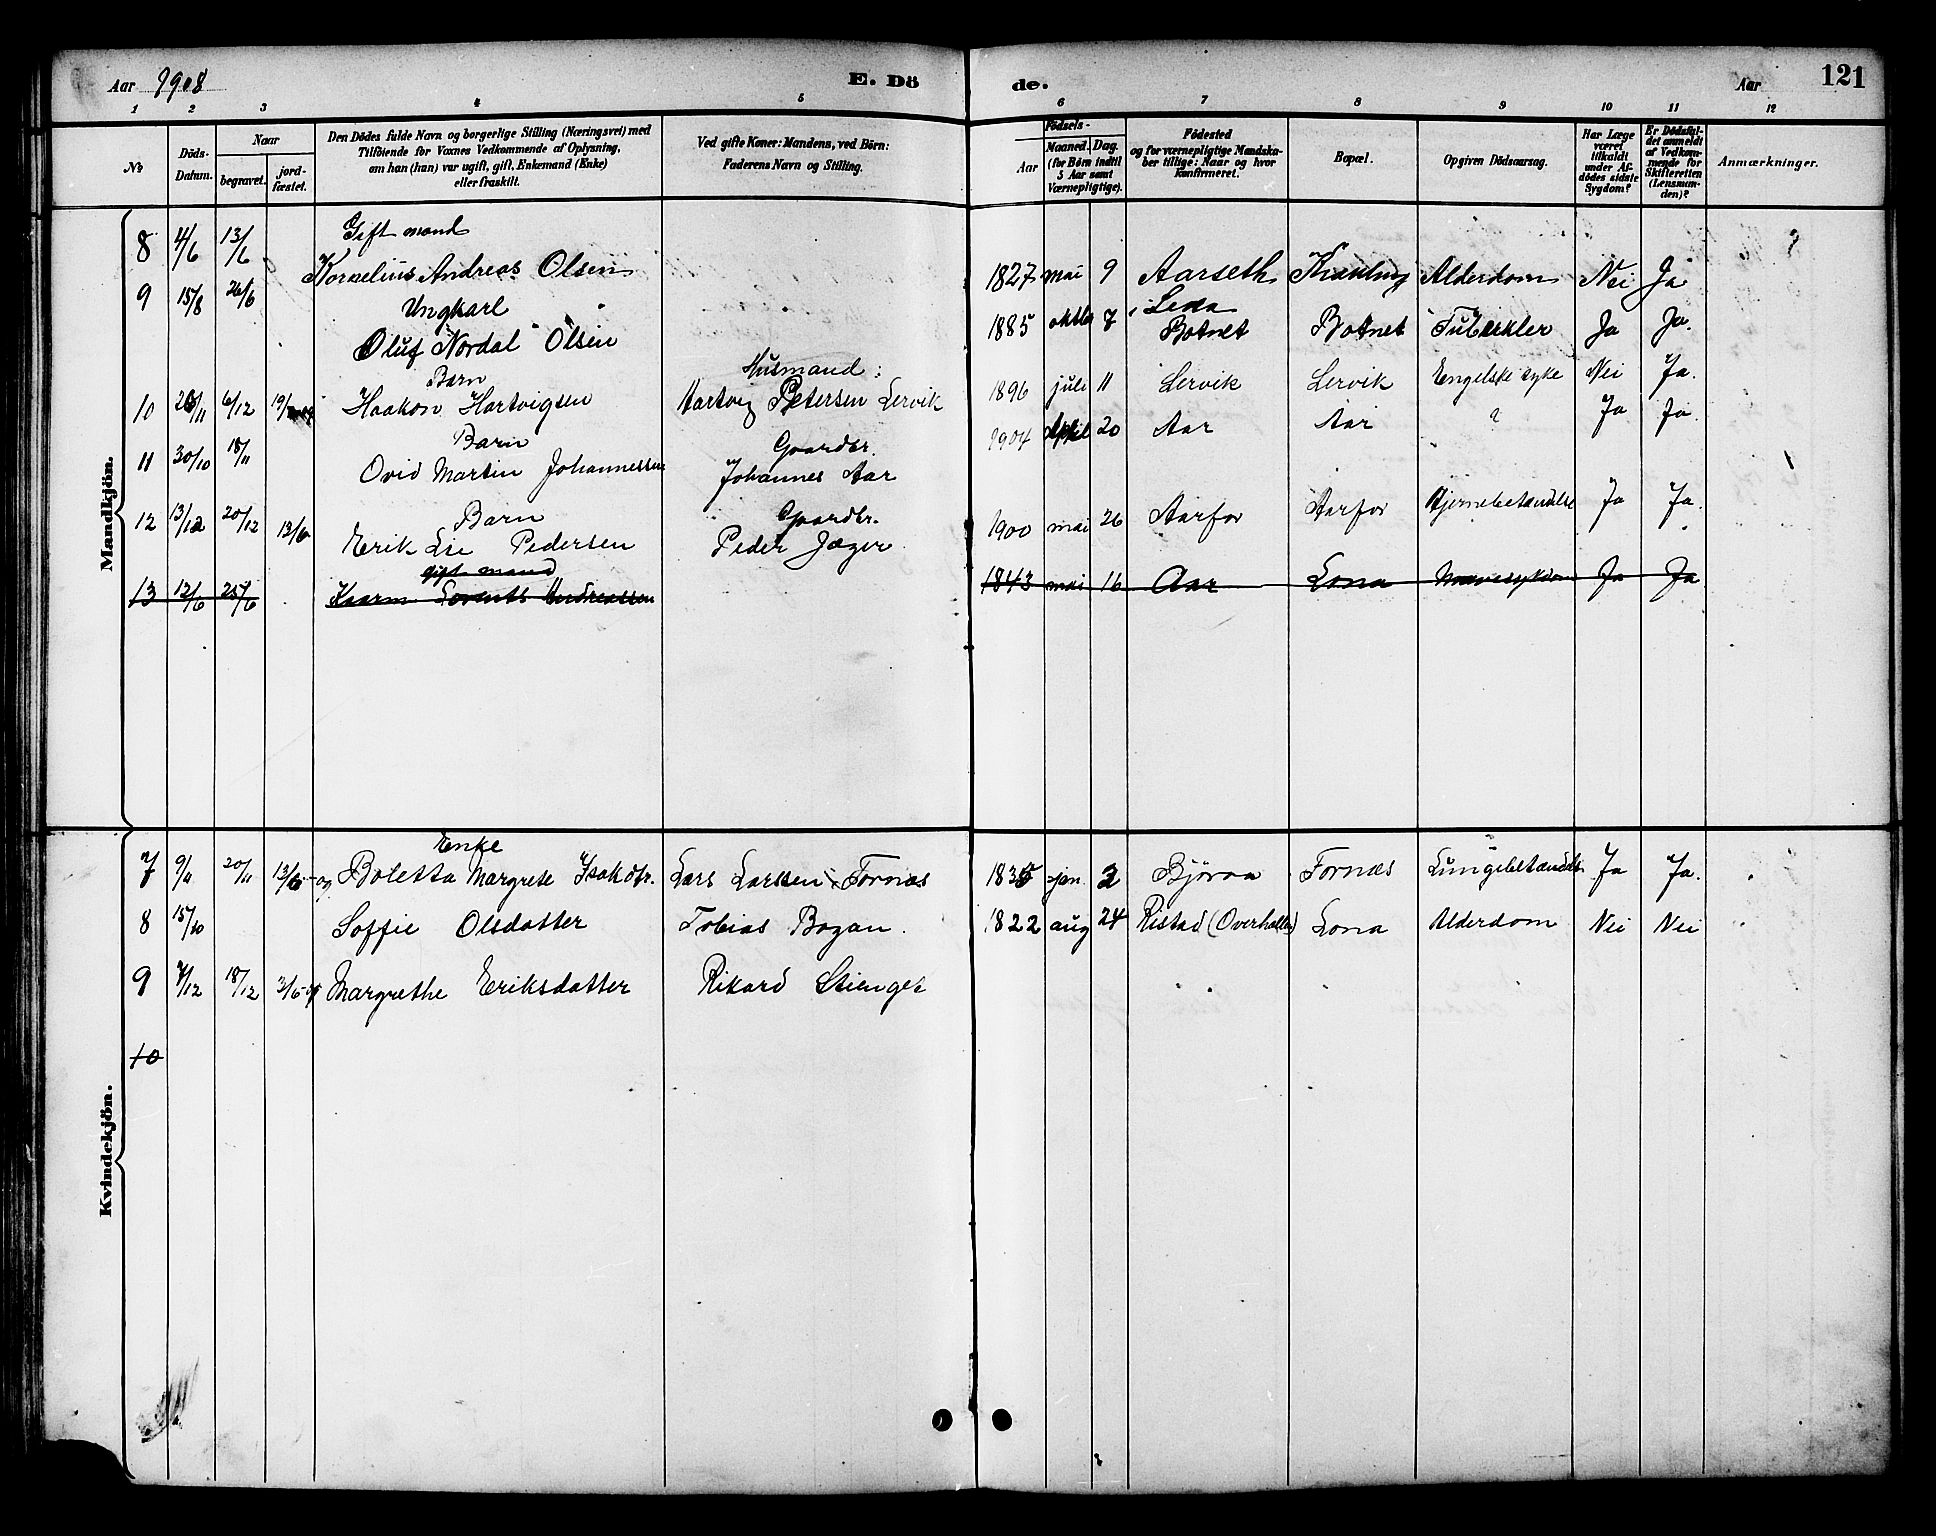 Aar 1908 E. Dö de. Aar 121
1 2 3 4 5 6 7 8 9 10 11 12
No
Döds-Datum.
Naar
begravet.
jord-fæstet.
Den Dödes fulde Navn og borgerlige Stilling (Næringsvei) med
Tilföiende for Voxnes Vedkommende af Oplysning,
om han (hun) var ugift, gift, Enkemand (Enke)
eller fraskilt.
Ved gifte Koner: Mandens, ved Börn:
Faderens Navn og Stilling.
Födsels-
Aar
Maaned. Dag.
(for Börn indtil
5 Aar samt
Værnepligtige).
Födested
og for værnepligtige Mandska-
ber tillige: Naar og hvor
konfirmeret.
Bopæl.
Opgiven Dödsaarsag.
Har Læge
været
tilkaldt
under Af-
dödes sidste
Sygdom?
Er Dödsfal-
det anmeldt
af Vedkom-
mende for
Skifteretten
(Lensman-
den)?
Anmærkninger.
Mandkjön.
Gift mand
8 4/6 13/6 Kornelius Andreas Olsen 1827 mai 9 Aarseth Alderdom Nei Ja
Ungkarl i Leka
9 15/8 26/6 Oluf Nordal Olsen 1885 oktb 7 Botnet Botnet Tuberkler Ja Ja.
Barn Husmand:
10 6/12 Haakon Hartvigsen Hartvig Petersen Lervik 1896 juli 11 Lervik Lervik Engelske syke Nei Ja.
Barn Gaardbr.
11 30/10 18/11 Ovid Martin Johannessen Johannes Aar 1904 April 20 Aar Aar ? Ja Ja.
Barn Gaardbr.
12 13/12 20/12 13/6 Erik Lie Pedersen Peder Jæger 1900 mai 26 Aarfor Aarfor Hjernebetændelse Ja Ja.
gift mand
13 12/6 25/6 Kaarm Lorents Andreassen 1843 mai 16 Aar Lona Mavesykdom Ja Ja
Kvindekjön.
Enke
7 9/11 20/11 13/6-09 Boletta Margrete Isaksdr. Lars Larssen Fornæs 1835 jan. 2 Björaa Fornæs Lungebetændelse Ja Ja.
8 15/10 Soffie Olsdatter Tobias Bogan. 1822 aug 24 Ristad (Overhallen) Lona Alderdom Nei Nei
9 7/12 18/12 3/6-09 Margrethe Eriksdatter Rikard
10